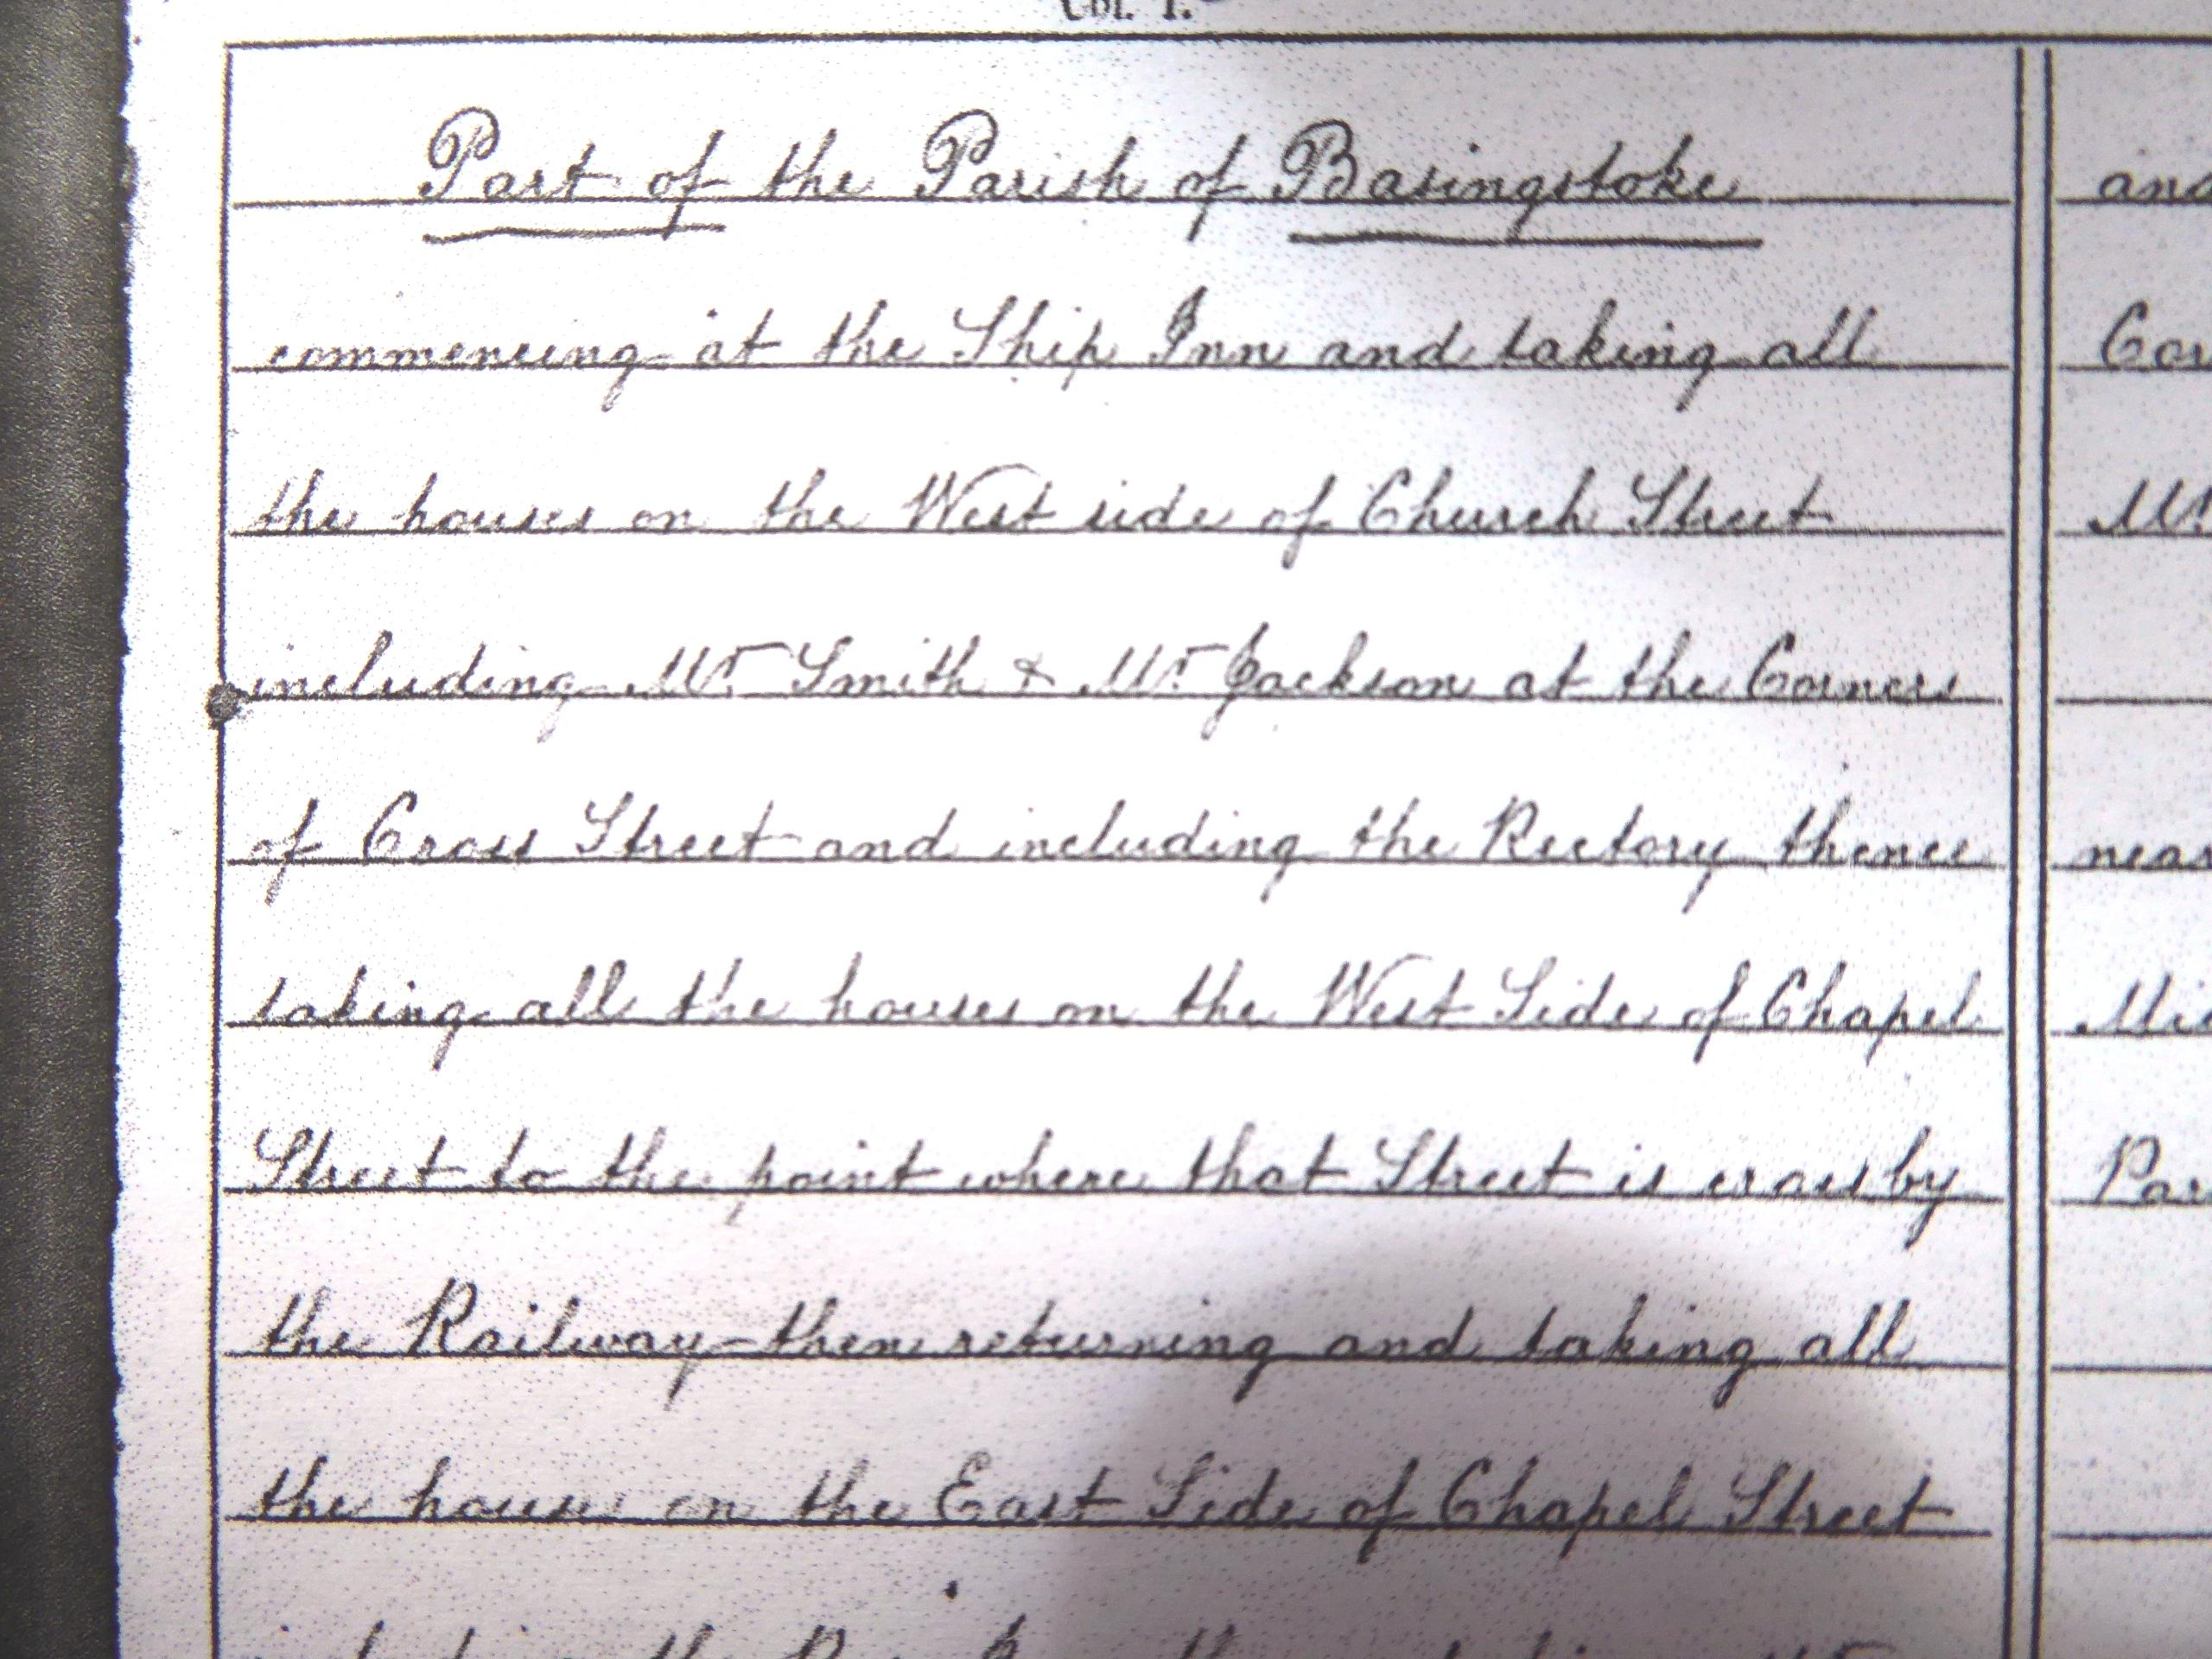 Col. 1.
Part of the Parish of Basingstoke
commencing at the Ship Inn and taking all
the houses on the West side of Church Street
including Mr Smith & Mr Jackson at the Corners
of Cross Street and including the Rectory thence
taking all the houses on the West Side of Chapel
Street to the point where that Street is cross by
the Railway - then returning and taking all
the houses on the East Side of Chapel Street